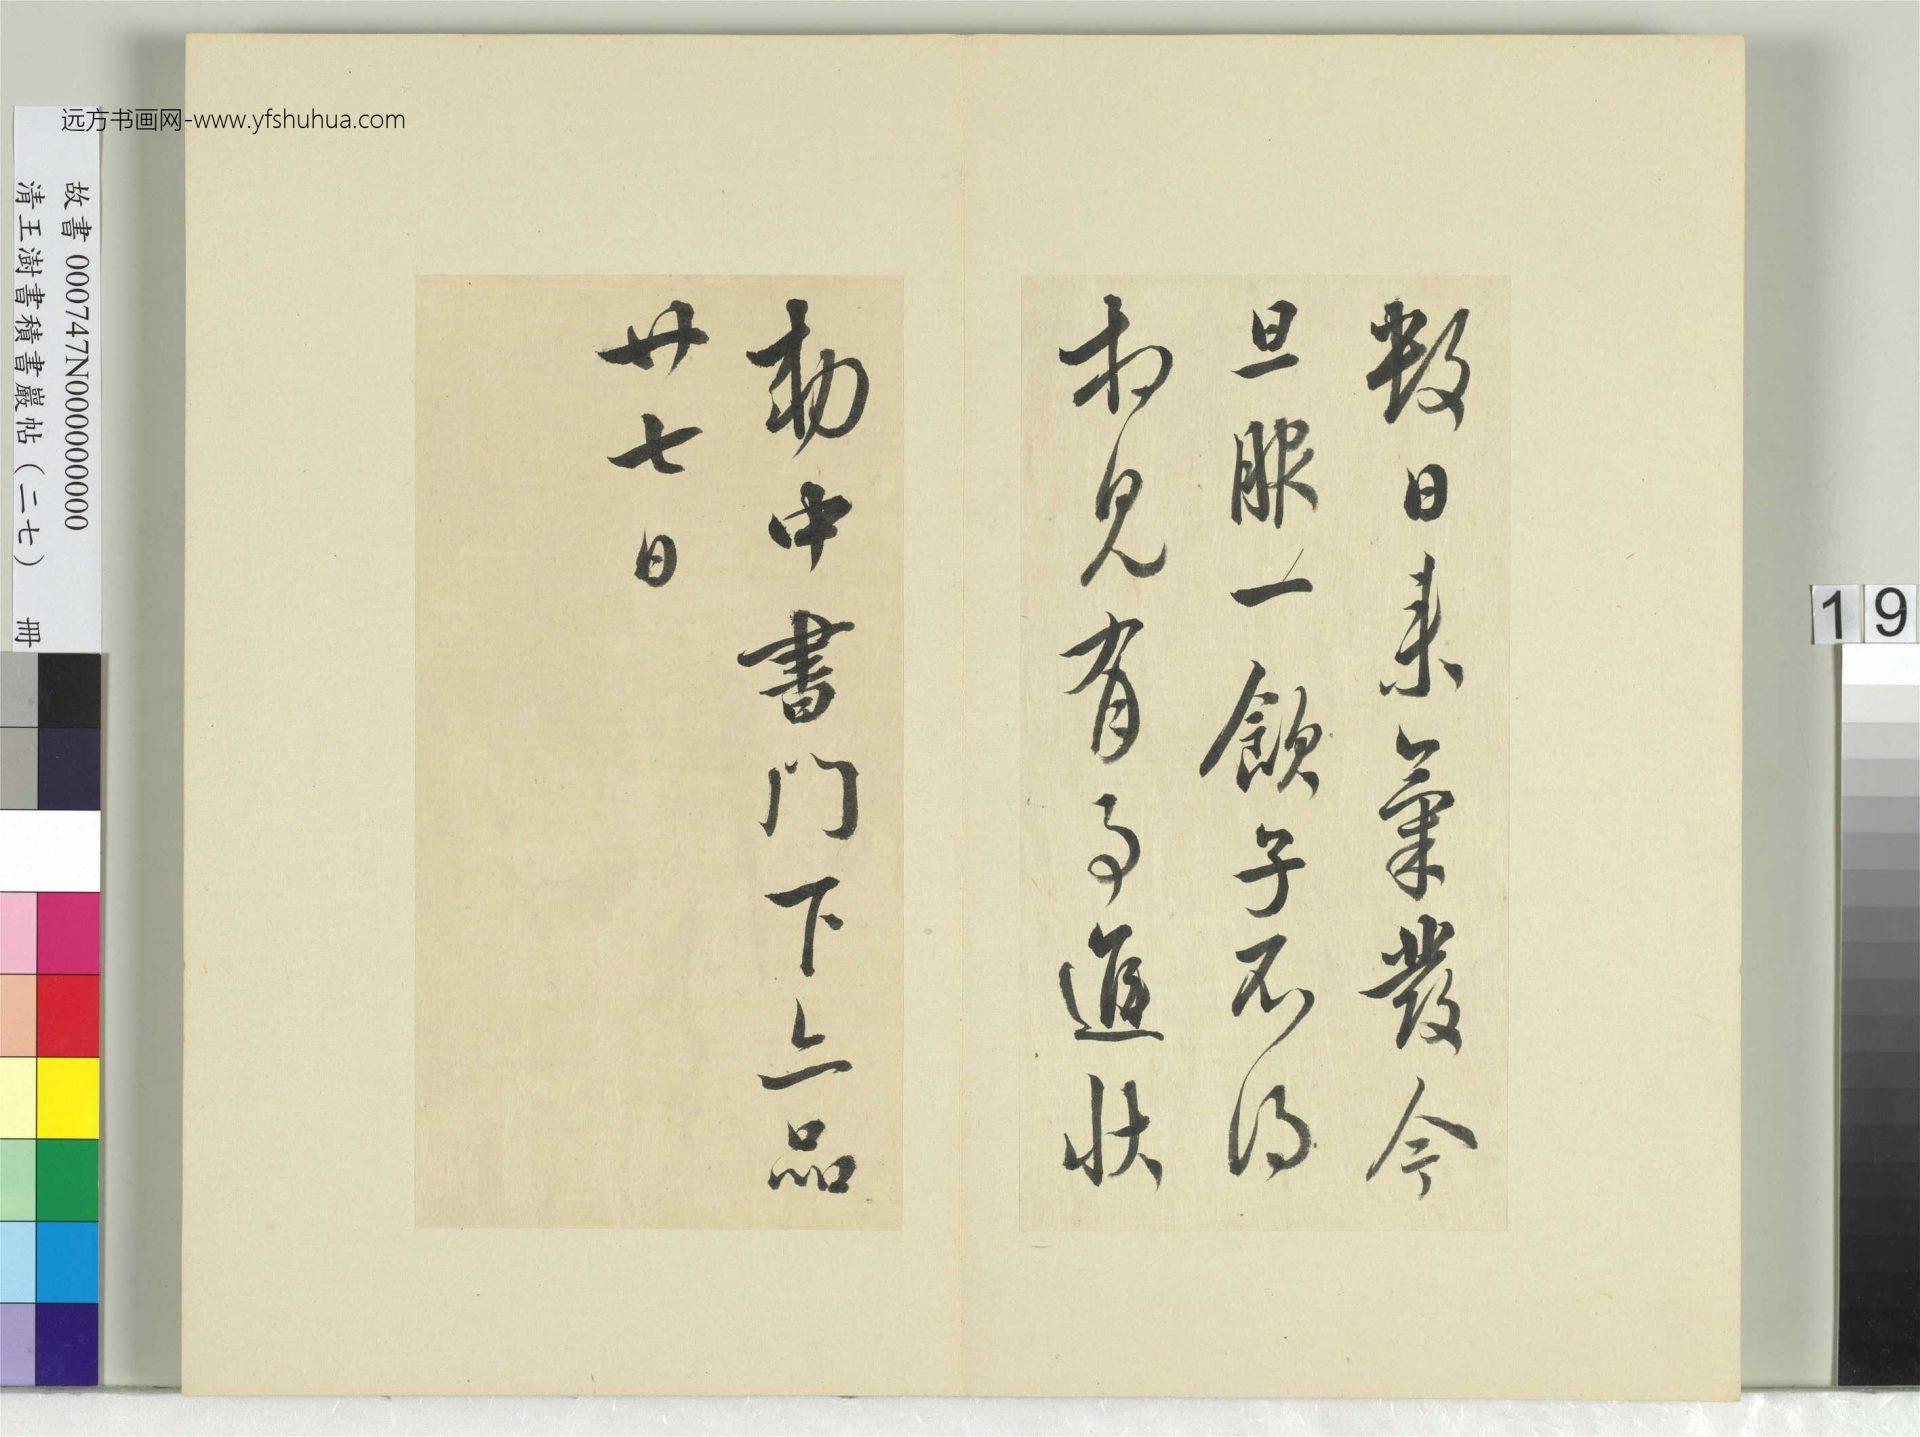 远方书画网-www.yfshuhua.com
故書 000747N000000000
清王澍書積書巖帖（二七） 冊
19
數日來氣發今
旦服一飲子不得
相見有事進狀
勑中書門下三品
廿七日